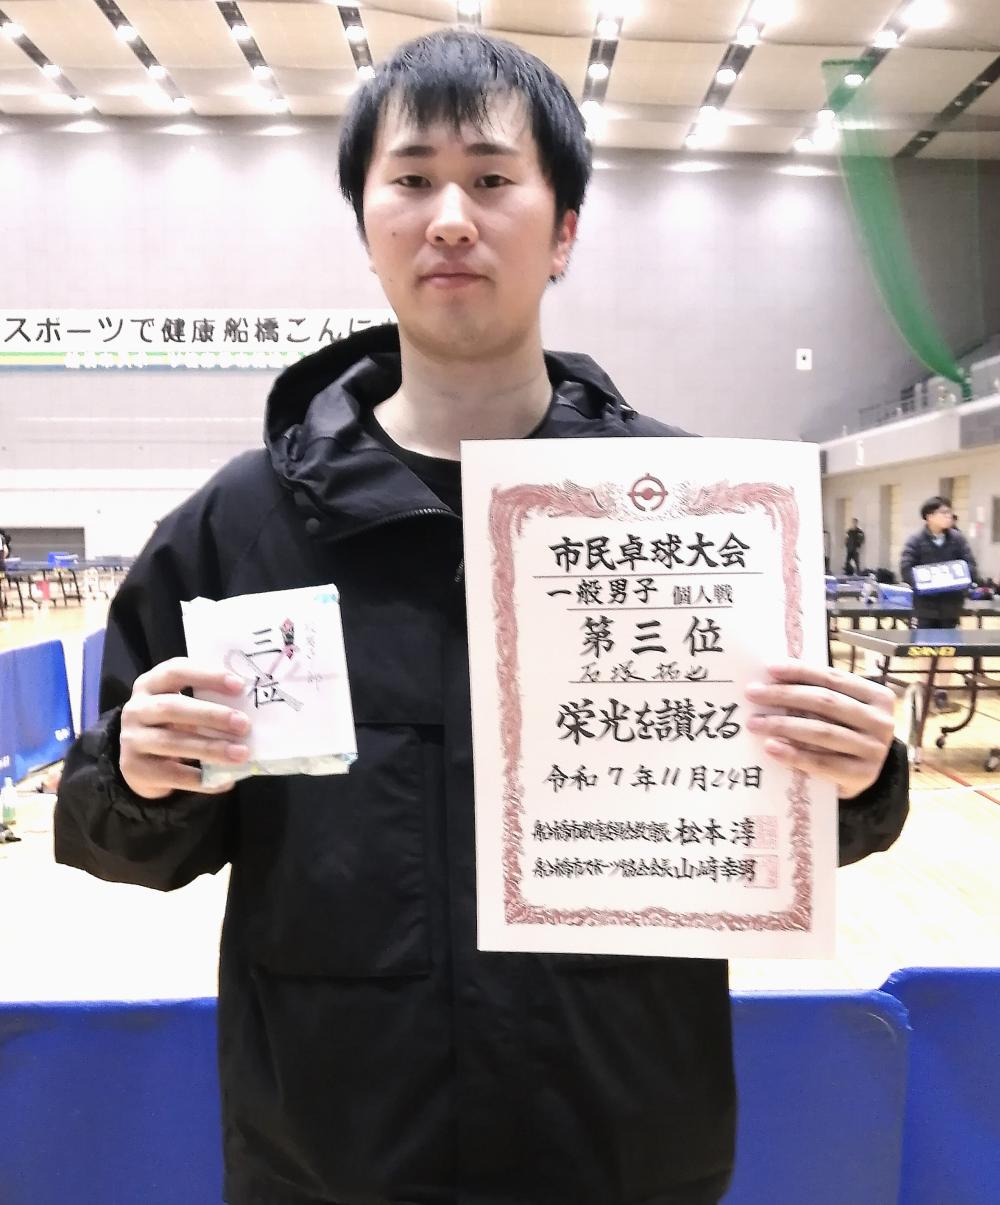 スポーツで健康船橋こんに
市民卓球大会
一般男子 個人戦
第三位
石塚 拓也
栄光を讃える
令和7年11月24日
船橋市教育委員会教育長 松本 淳
船橋市スポーツ協会会長 山﨑幸男
三位
SAN-EI